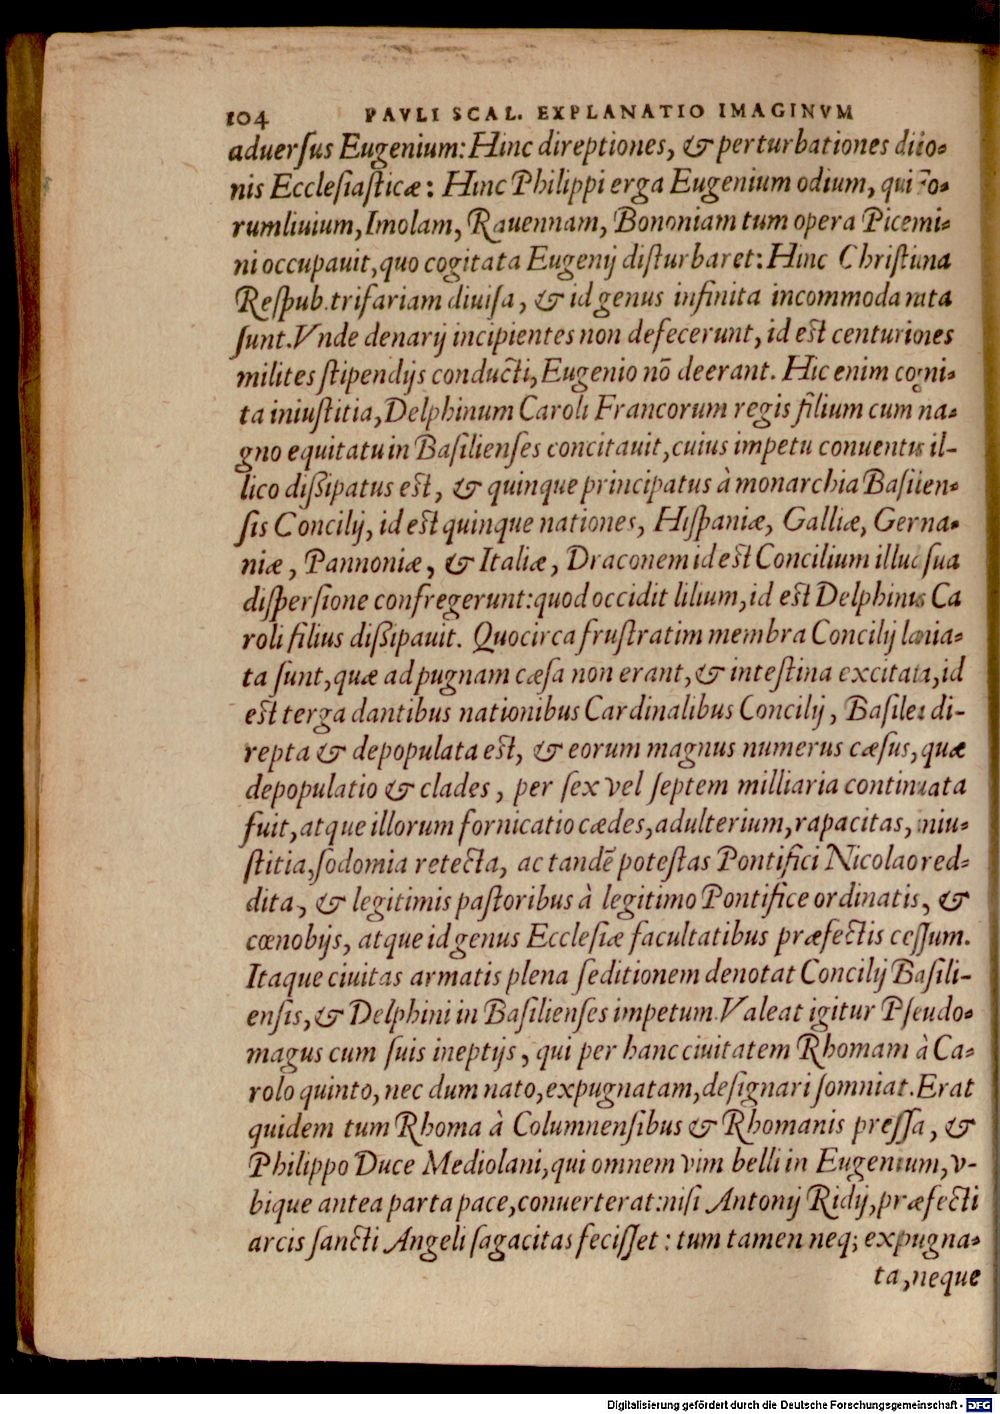 104 PAVLI SCAL. EXPLANATIO IMAGINVM
aduerſus Eugenium: Hinc direptiones, & perturbationes ditio-
nis Eccleſiaſticæ: Hinc Philippi erga Eugenium odium, qui Fo-
rumliuium, Imolam, Rauennam, Bononiam tum opera Picemi-
ni occupauit, quo cogitata Eugenij diſturbaret: Hinc Chriſtiana
Reſpub. trifariam diuiſa, & id genus infinita incommoda nata
ſunt. Vnde denarij incipientes non defecerunt, id eſt centuriones
milites ſtipendijs conducti, Eugenio nō deerant. Hic enim cogni-
ta iniuſtitia, Delphinum Caroli Francorum regis filium cum ma-
gno equitatu in Baſilienſes concitauit, cuius impetu conuentus il-
lico diſſipatus eſt, & quinque principatus à monarchia Baſilien-
ſis Concilij, id eſt quinque nationes, Hiſpaniæ, Galliæ, Germa-
niæ, Pannoniæ, & Italiæ, Draconem id eſt Concilium illud ſua
diſperſione confregerunt: quod occidit lilium, id eſt Delphinus Ca
roli filius diſſipauit. Quocirca fruſtratim membra Concilij lania-
ta ſunt, quæ ad pugnam cæſa non erant, & inteſtina excitata, id
eſt terga dantibus nationibus Cardinalibus Concilij, Baſilea di-
repta & depopulata eſt, & eorum magnus numerus cæſus, quæ
depopulatio & clades, per ſex vel ſeptem milliaria continuata
fuit, atque illorum fornicatio cædes, adulterium, rapacitas, iniu-
ſtitia, ſodomia retecta, ac tandē poteſtas Pontifici Nicolao red-
dita, & legitimis paſtoribus à legitimo Pontifice ordinatis, &
cœnobijs, atque id genus Eccleſiæ facultatibus præfectis ceſſum.
Itaque ciuitas armatis plena ſeditionem denotat Concilij Baſili-
enſis, & Delphini in Baſilienſes impetum. Valeat igitur Pſeudo-
magus cum ſuis ineptijs, qui per hanc ciuitatem Rhomam à Ca-
rolo quinto, nec dum nato, expugnatam, deſignari ſomniat. Erat
quidem tum Rhoma à Columnenſibus & Rhomanis preſſa, &
Philippo Duce Mediolani, qui omnem vim belli in Eugenium, v-
bique antea parta pace, conuerterat: niſi Antonij Ridij, præfecti
arcis ſancti Angeli ſagacitas feciſſet: tum tamen neq; expugna-
ta, neque
Digitalisierung gefördert durch die Deutsche Forschungsgemeinschaft - DFG